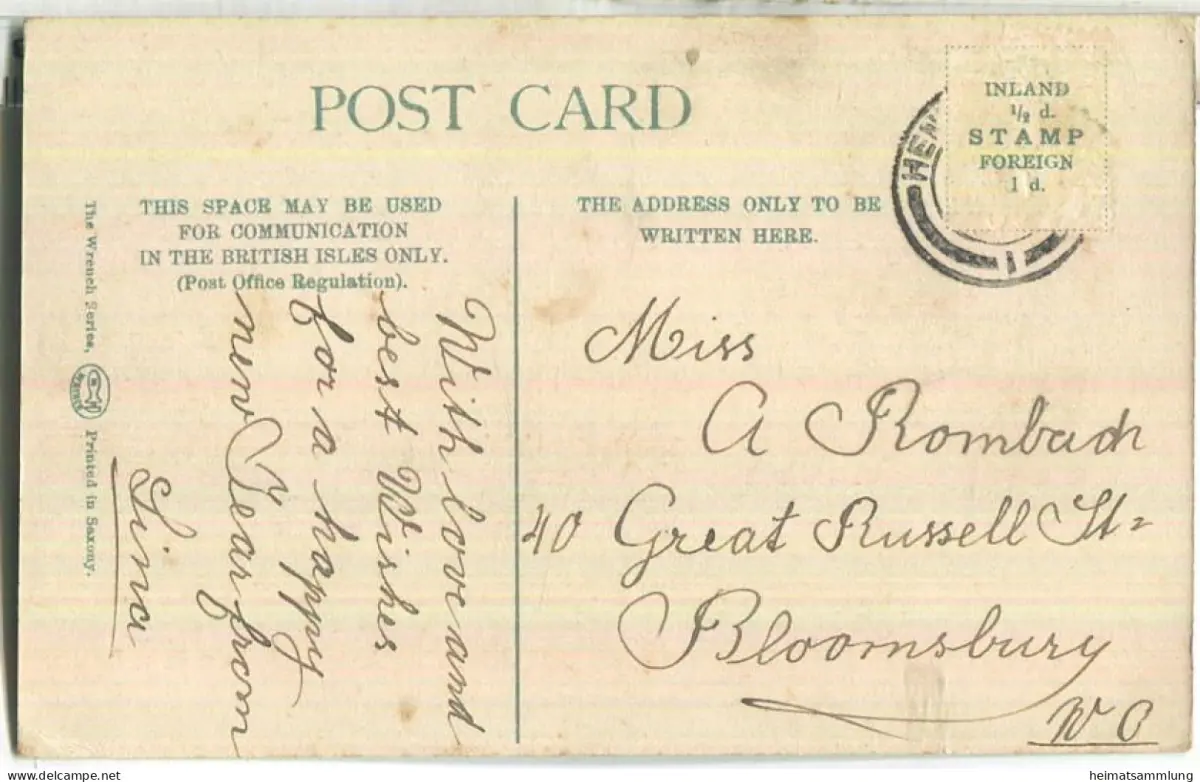 POST CARD
INLAND
1/2 d.
STAMP
FOREIGN
1 d.
HEM
1
THIS SPACE MAY BE USED
FOR COMMUNICATION
IN THE BRITISH ISLES ONLY.
(Post Office Regulation).
THE ADDRESS ONLY TO BE
WRITTEN HERE.
The Wrench Series,
Printed in Saxony.
With love and
best Wishes
for a happy
new Year from
Miss
A Rombach
40 Great Russell St=
Bloomsbury
W C
heimatsammlung
delcampe.net